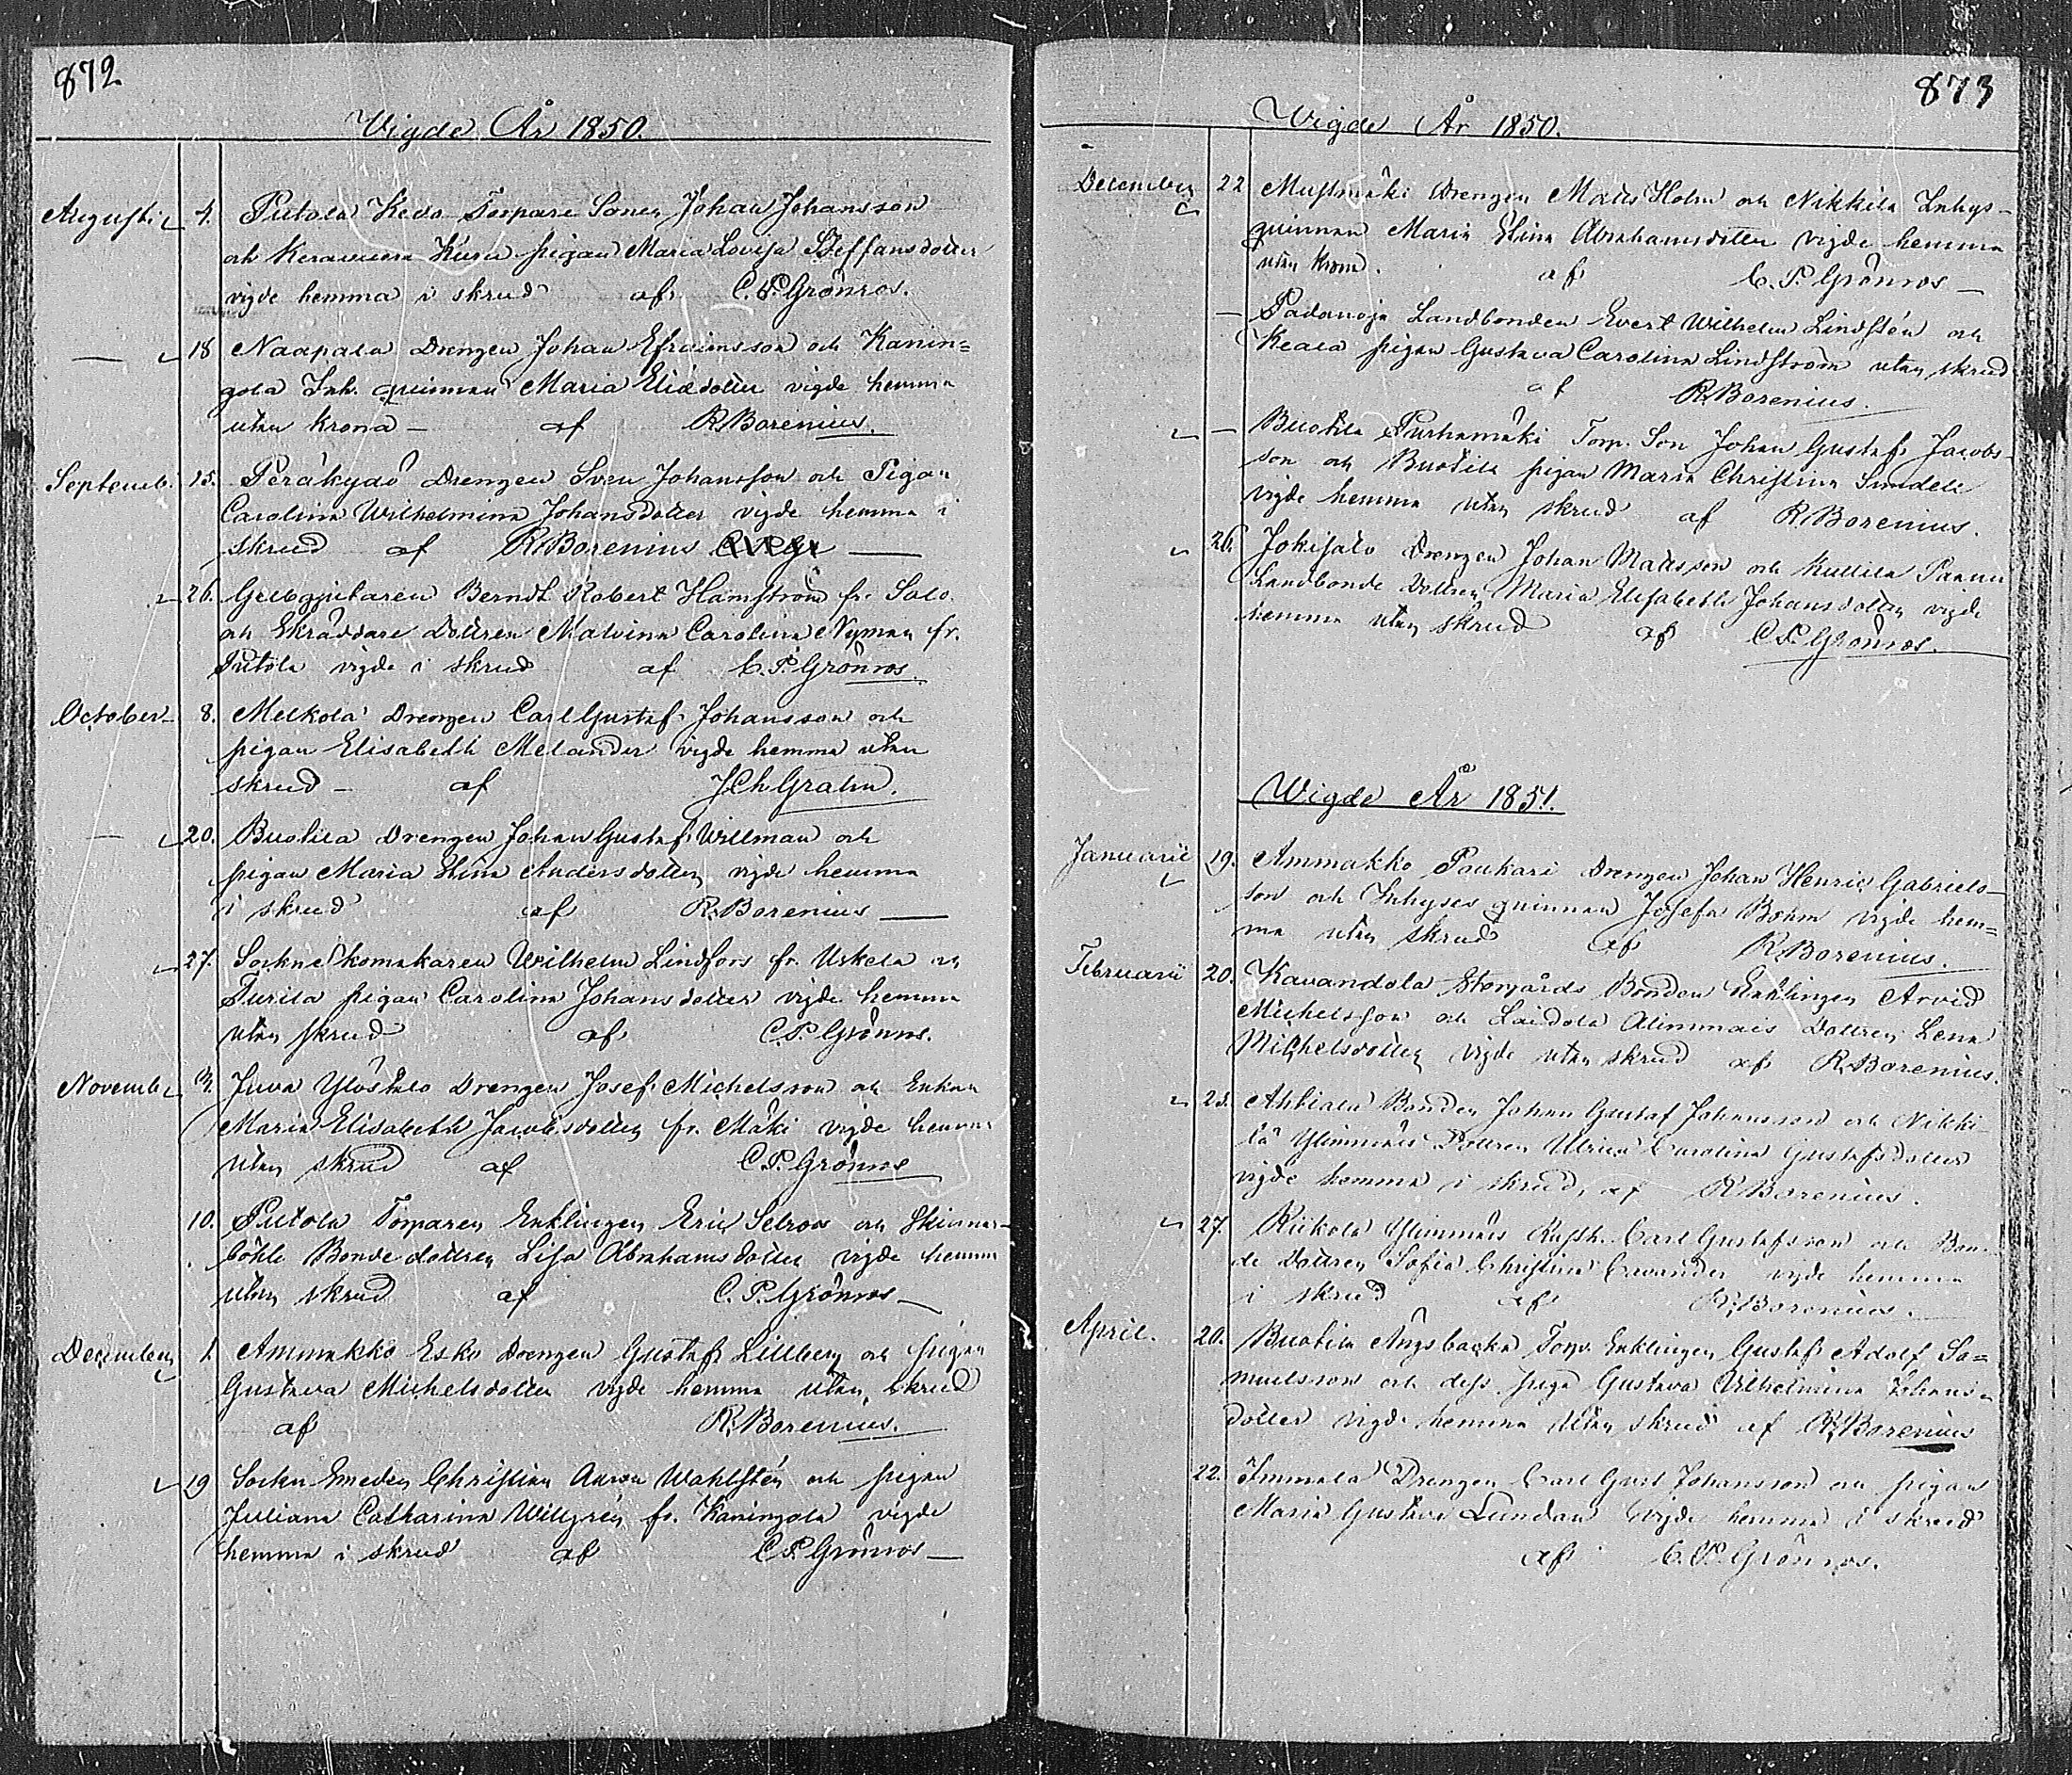 872
Vigde År 1850.
Augusti 4. Putola Kedo Torpare Sonen Johan Johansson
och Keravuori Kuru pigan Maria Lovisa Steffansdotter
vigde hemma i skrud af C. P. Grönros.
— 18 Naapala Drengen Johan Efraimsson och Kanin=
gola Inh. quinnan Maria Eliædotter vigde hemma
utan Krona — af R. Borenius.
Septemb. 15. Peräkydö Drengen Sven Johansson och Pigan
Carolina Wilhelmina Johansdotter vigde hemma i
skrud af R. Borenius
26. Guldgjutaren Berndt Robert Hamström fr. Salo
och Skräddare Dottren Malvina Carolina Nyman fr.
Putola vigde i skrud af C. P. Grönros.
October 8. Melkola Drengen Carl Gustaf Johansson och
pigan Elisabeth Melander vigde hemma utan
skrud — af J Ch Grahn.
— 20. Buotila Drengen Johan Gustaf Willman och
pigan Maria Stina Andersdotter vigde hemma
i skrud af R. Borenius —
27. Sockne skomakaren Wilhelm Lindfors fr. Uskela och
Turila pigan Carolina Johansdotter vigde hemma
utan skrud af C. P. Grönros.
Novemb. 3. Juva Ylöstalo Drengen Josef Michelsson och Enkan
Maria Elisabeth Jacobsdotter fr. Mäki vigde hemma
utan skrud af C. P. Grönros
10. Putola Torparen Enklingen Eric Selroos och Skinnar=
böhle Bonde dottren Lisa Abrahamsdotter vigde hemma
utan skrud af C. P. Grönros —
December 1. Ammakko Esko Drengen Gustaf Lillberg och pigan
Gustava Michelsdotter vigde hemma utan skrud
af R. Borenius.
19 Sockn Smeden Christian Aaron Wahlstén och pigan
Juliana Catharina Willgrén fr. Kaningola vigde
hemma i skrud af C. P. Grönros —
873
Vigde År 1850.
December 22 Mustmäki Drengen Matts Holm och Nikkilä Inhys-
quinnan Maria Stina Abrahamsdotter vigde hemma
utan Krona. af C. P. Grönros —
— Padanoja Landbonden Evert Wilhelm Lindstén och
Keala pigan Gustava Carolina Lindström utan skrud
af R. Borenius.
— Buotila Purhamäki Torp. Son Johan Gustaf Jacobs-
son och Buotila pigan Maria Christina Sundell
vigde hemma utan skrud af R. Borenius.
26. Jokisalo Drengen Johan Mattsson och Kullila Paanu
Landbonde Dottren Maria Elisabeth Johansdotter vigde
hemma utan skrud af C. P. Grönros.
Wigde År 1851.
Januarii 19. Ammakko Poukari Drengen Johan Henric Gabriels-
son och Inhyses quinnan Josefa Bohm vigde hem=
ma utan skrud af R. Borenius.
Februarii 20. Kavandola Storgårds Bonden Enklingen Arvid
Michelsson och Laidola Alimmais Dottren Lena
Michelsdotter vigde utan skrud af R. Borenius.
23. Ahtiala Bonden Johan Gustaf Johansson och Nikki-
lä Ylimmäis Dottren Ulrica Carolina Gustafsdotter
vigde hemma i skrud, af R. Borenius.
27. Riikola Ylimmäis Rusth. Carl Gustafsson och Bon-
de Dottren Sofia Christina Cavander vigde hemma
i skrud af R. Borenius.
April. 20. Buotila Ängsbacka Torp. Enklingen Gustaf Adolf Sa=
muelsson och dess piga Gustava Vilhelmina Johans-
dotter vigde hemma utan skrud af R. Borenius
22. Immala Drengen Carl Gust. Johansson och pigan
Maria Gustava Lundan vigde hemma i skrud
af C. P. Grönros.